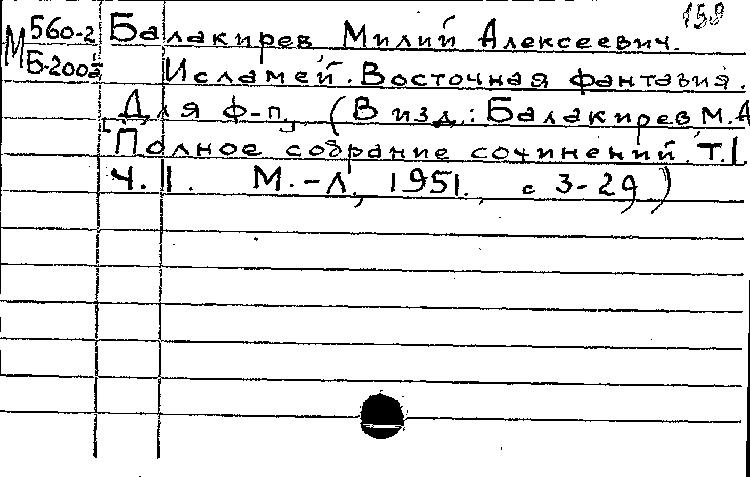 158
М 560-2 Балакирев Милий Алексеевич.
Б-200 Исламей. Восточная фантазия.
[Для ф-п] (В изд.: Балакирев М.А
Полное собрание сочинений. Т.I
Ч. II. М.-Л., 1951. с 3-29)